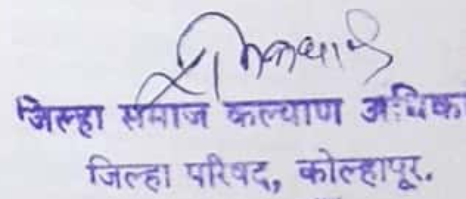 जिल्हा समाज कल्याण अधिका
जिल्हा परिषद, कोल्हापूर.